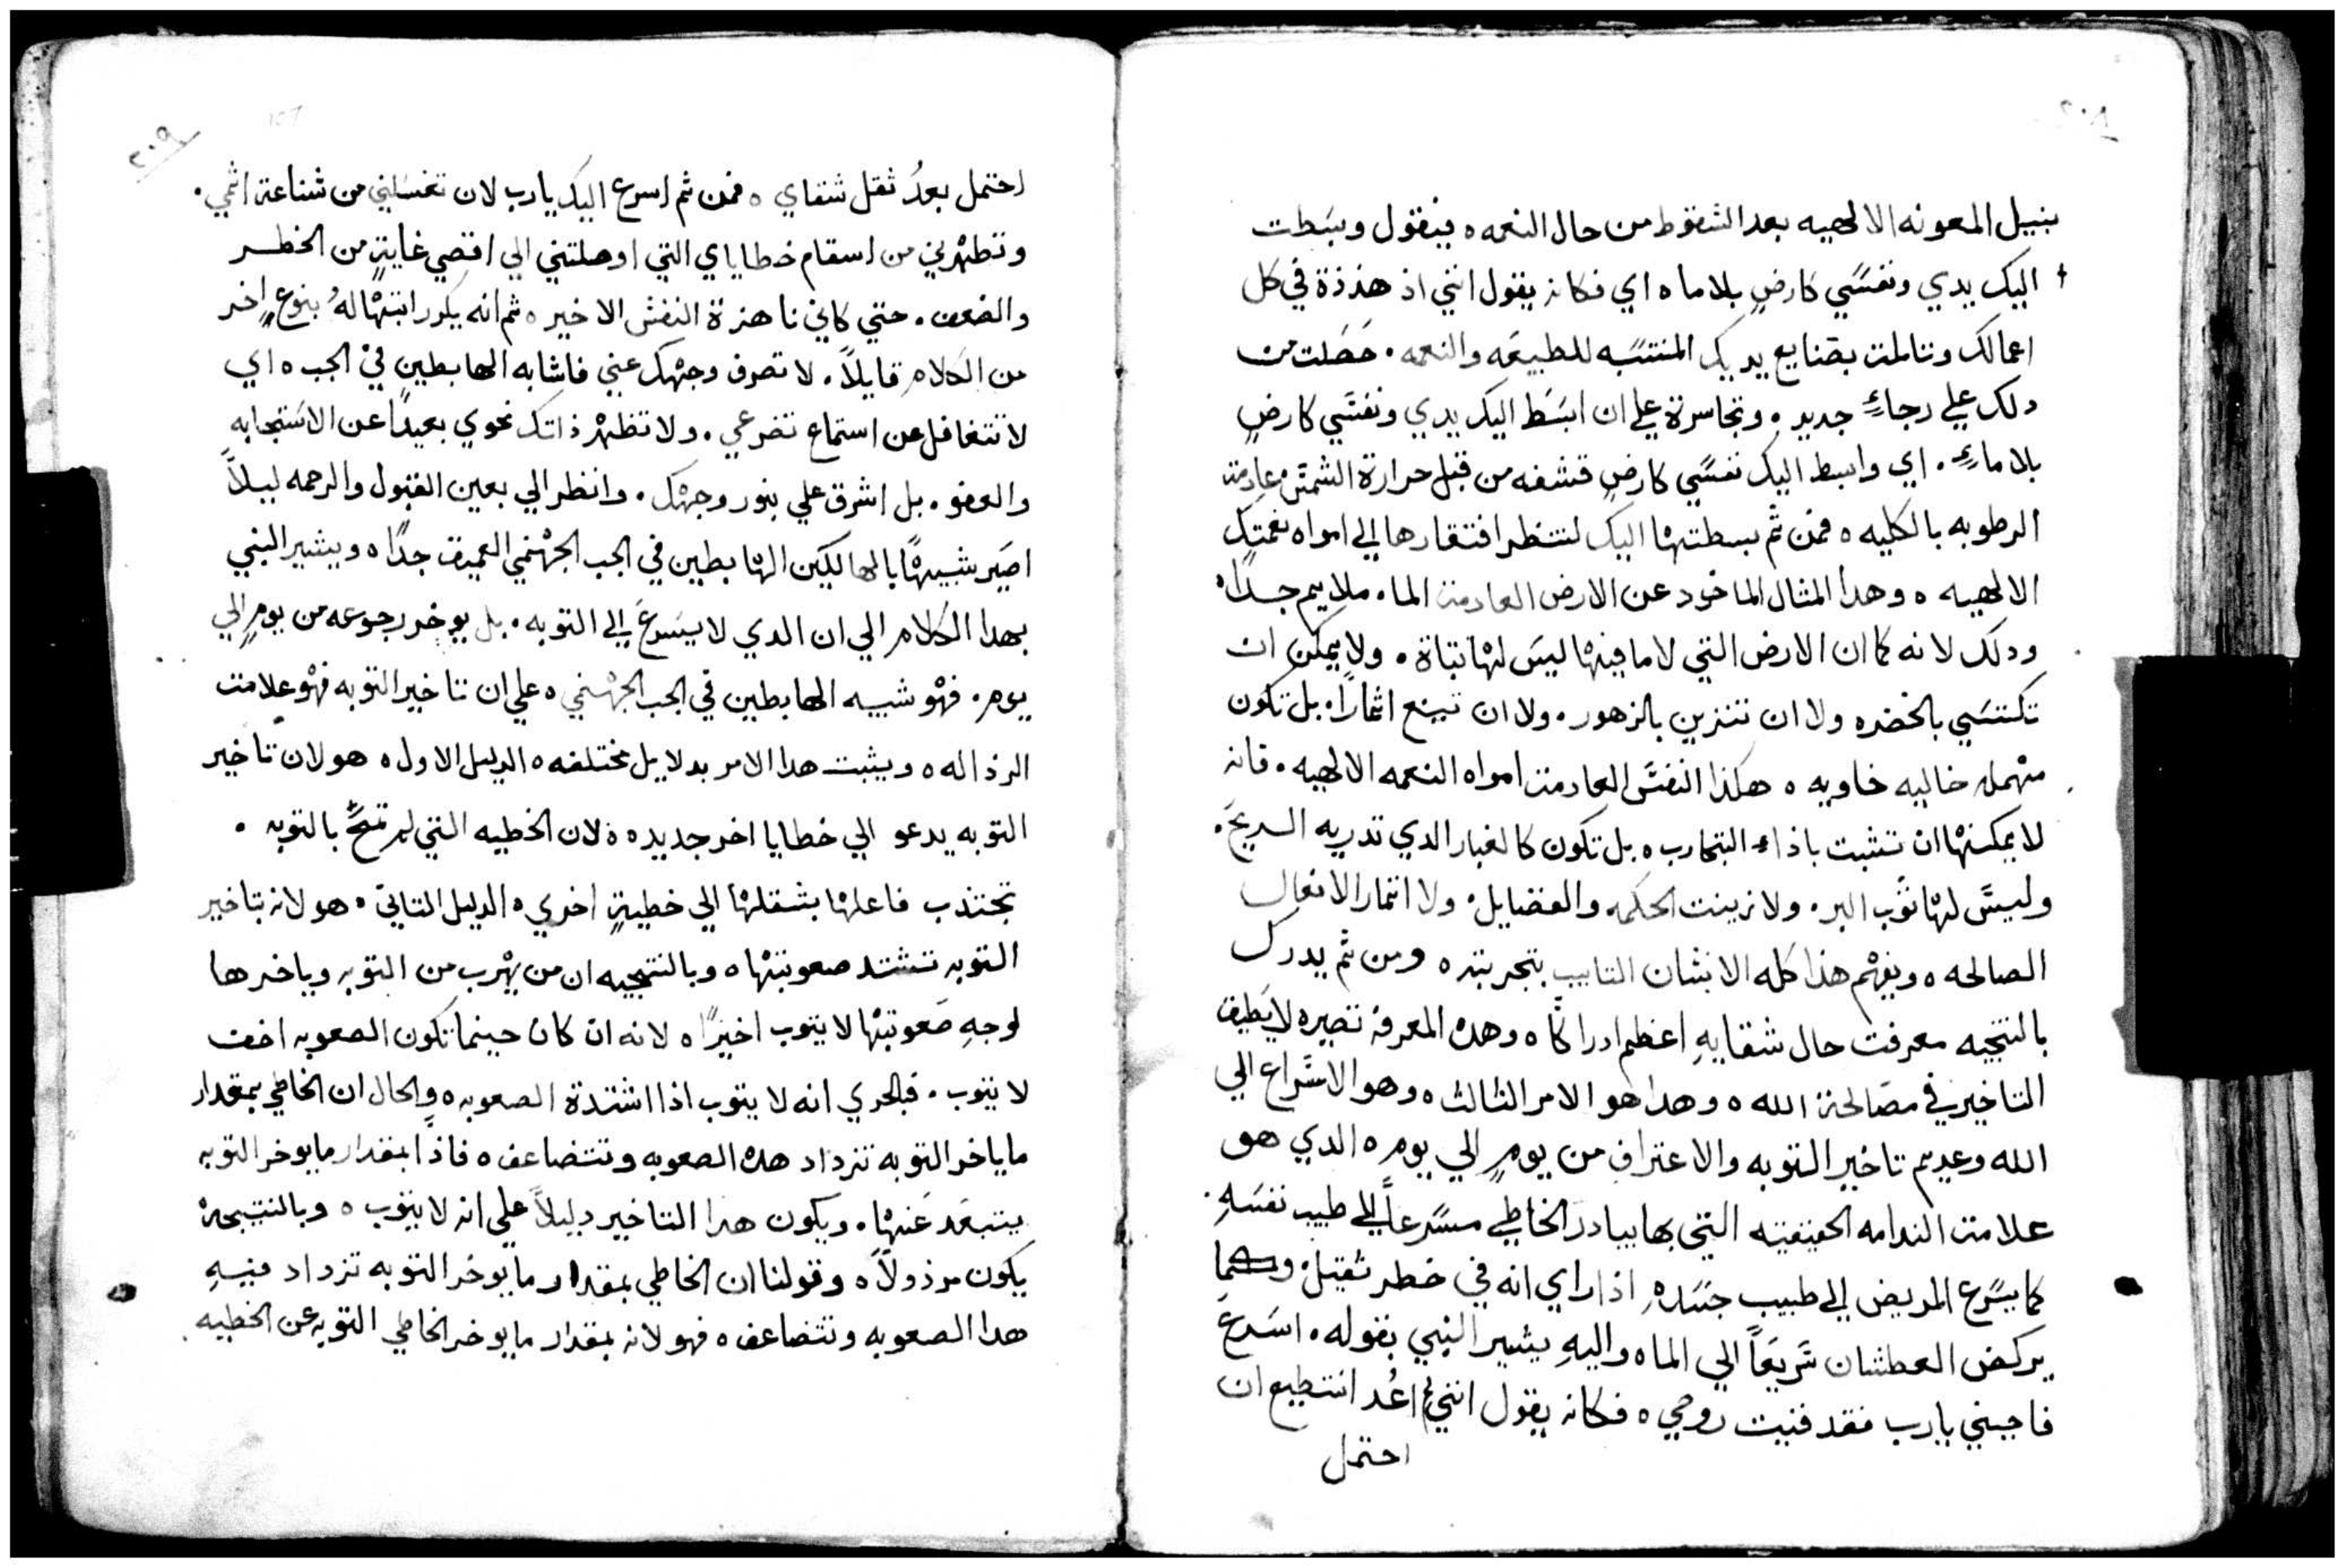 ٢٠٨
بنيل المعونه الالهيه بعد السقوط من حال النعمه ه فيقول وبسطت
اليك يدي ونفسي كارضٍ بلا ما ه اي فكانه يقول انني اذ هذذة في كل
اعمالك وتاملت بصنايع يديك المنتسبه للطبيعه والنعمه . حصلت من
دلك علي رجاءٍ جديد . وتجاسرة علي ان ابسط اليك يدي ونفسي كارضٍ
بلا ماءٍ . اي وابسط اليك نفسي كارضٍ قشفه من قبل حرارة الشمس عادمة
الرطوبه بالكليه ه فمن ثم بسطتها اليك لتنظر افتقارها الي امواه نعمتك
الالهيه ه وهدا المثال الماخود عن الارض العادمة الما . ملايم جداً ه
ودلك لانه كما ان الارض التي لا ما فيها ليس لها تباة . ولا يمكن ان
تكتسي بالخضره ولا ان تتزين بالزهور . ولا ان تينع اثماراً . بل تكون
مهمله خاليه خاويه ه هكذا النفس العادمة امواه النعمه الالهيه . فانه
لا يمكنها ان تثبت باذاء التجارب ه بل تكون كالغبار الدي تدريه الريح .
وليس لها ثوب البر . ولا زينت الحكمه والفضايل . ولا اثمار الافعال
الصالحه ه ويفهم هذا كله الانسان التايب بتجربته ه ومن ثم يدرك
بالنتيجيه معرفت حال شقايهِ اعظم ادراكاً ه وهده المعرفه تصيره لا يطيق
التاخير في مصالحة الله ه وهدا هو الامر الثالث ه وهو الاسراع الي
الله وعديم تاخير التوبه والاعتراف من يومٍ الي يوم ه الدي هو
علامت الندامه الحقيقيه التي بها يبادر الخاطي مسرعاً الي طبيب نفسهِ .
كما يسرع المريض الي طبيب جسدهِ اذا راي انه في خطر ثقيل . وكما
يركض العطشان سريعاً الي الما ه واليهِ يشير النبي بقوله . اسرع
فاجبني يارب فقد فنيت روحي ه فكانه يقول انني لم اعُد استطيع ان
احتمل
٢٠٩
احتمل بعدُ ثقل شقاي ه فمن ثم اسرع اليك يارب لان تغسلني من شناعة اثمي .
وتطهرني من اسقام خطاياي التي اوصلتني الي اقصي غايةٍ من الخطر
والضعف . حتي كاني ناهزة النفس الاخير ه ثم انه يكرر ابتهاله بنوعٍ اخر
من الكلام قايلاً . لا تصرف وجهك عني فاشابه الهابطين في الجب ه اي
لا تتغافل عن استماع تضرعي . ولا تظهر ذاتك نحوي بعيداً عن الاستجابه
والعفو . بل اشرق علي بنور وجهك . وانظر الي بعين القبول والرحمه ليلاً
اصير شبيهاً بالهالكين الهابطين في الجب الجهنمي العميق جداً ه ويشير النبي
بهدا الكلام الي ان الدي لا يسرع الي التوبه . بل يوخر رجوعه من يومٍ الي
يوم . فهو شبيه الهابطين في الجب الجهنمي ه علي ان تاخير التوبه فهو علامت
الرذاله ه ويثبت هدا الامر بدلايل مختلفه ه الدليل الاول ه هو لان تاخير
التوبه يدعو الي خطايا اخر جديده ه لان الخطيه التي لم تمحَّ بالتوبه .
تجتذب فاعلها بثقلها الي خطيةٍ اخري ه الدليل التاني ه هو لانه بتاخير
التوبه تشتد صعوبتها ه وبالنتيجيه ان من يهرب من التوبه وياخرها
لوجهِ صعوبتها لا يتوب اخيراً ه لانه ان كان حينما تكون الصعوبه اخف
لا يتوب . فبالحري انه لا يتوب اذا اشتدة الصعوبه ه والحال ان الخاطي بمقدار
ما ياخر التوبه تزداد هده الصعوبه وتتضاعف ه فاذاً بمقدار ما يوخر التوبه
يتبعد عنها . ويكون هدا التاخير دليلاً علي انه لا يتوب ه وبالنتيجة
يكون مرذولاً ه وقولنا ان الخاطي بمقدار ما يوخر التوبه تزداد فيهِ
هدا الصعوبه وتتضاعف ه فهو لانه بمقدار ما يوخر الخاطي التوبه عن الخطيه